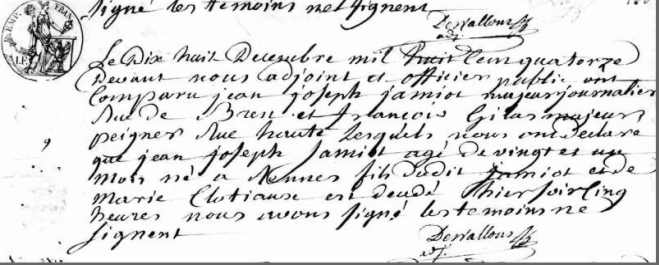 Signé les temoins ne signent
Desvallons
adj.
Le Dix huit Decembre mil huit cent quatorze
Devant nous adjoint et officier public ont
Comparu jean joseph jamiot majeur journalier
Rue De Brest et françois majeur
peigner Rue haute Lesquels nous ont declaré
que jean joseph Jamiot agé De vingt et un
mois né a Rennes fils dudit jamiot et de
Marie est decedé hier soir Cinq
heures nous avons signé les temoins ne
signent
Desvallons
adj.